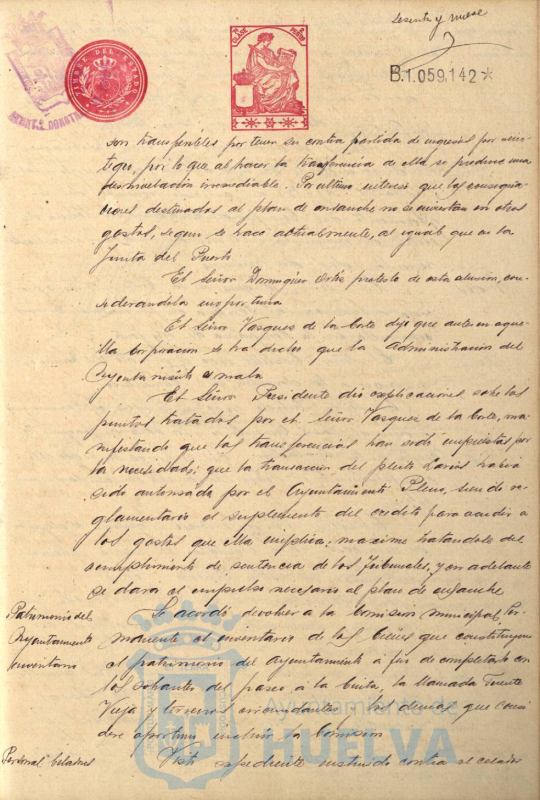 Sesenta y nueve
TIMBRE DEL ESTADO
B.1.059.142*
son transferibles por tener su contra partida de ingresos por reintegro, por lo que al hacer la trasferencia de ella se produce una
desnivelación irremediable. Por último interesa que las consignaciones
destinadas al plan de ensanche no se inviertan en otros
gastos, según se hace actualmente, al igual que en la
Junta del Puerto
El Señor Dominguez Ortiz protesta de esta alusión, con-
siderandola inoportuna
El Señor Vasquez de la Corte dijo que antes en aque-
lla Corporacion se ha dicho que la administracion del
Ayuntamiento es mala
El Señor Presidente dió explicaciones sobre los
puntos tratados por el Señor Vasquez de la Corte, ma-
nifestando que las transferencias han sido impuestas por
la necesidad; que la transacción del pleito Larios había
sido autorisada por el Ayuntamiento Pleno, siendo re-
glamentario el suplemento del credito para acudir a
los gastos que ella implica; maxime tratandose del
cumplimiento de sentencia de los Tribunales, y en adelante
se dara el impulso necesario al plan de ensanche
Patrimonio del
Ayuntamiento
inventario
Se acordó devolver a la Comisión municipal Per-
manente el inventario de los bienes que constituyen
el patrimonio del ayuntamiento a fin de completarlo con
los sobrantes del paseo a la Cinta, la llamada Fuente
Vieja y terrenos circundantes y los demas que consi-
dere oportuno incluir la Comisión
Personal celadores
Visto expediente instruido contra el celador
Ayuntamiento de
HUELVA